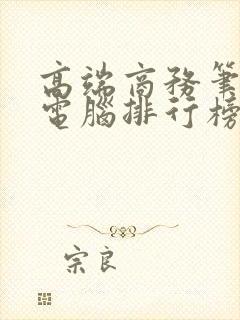 高端商務筆
電腦排行榜
宗良